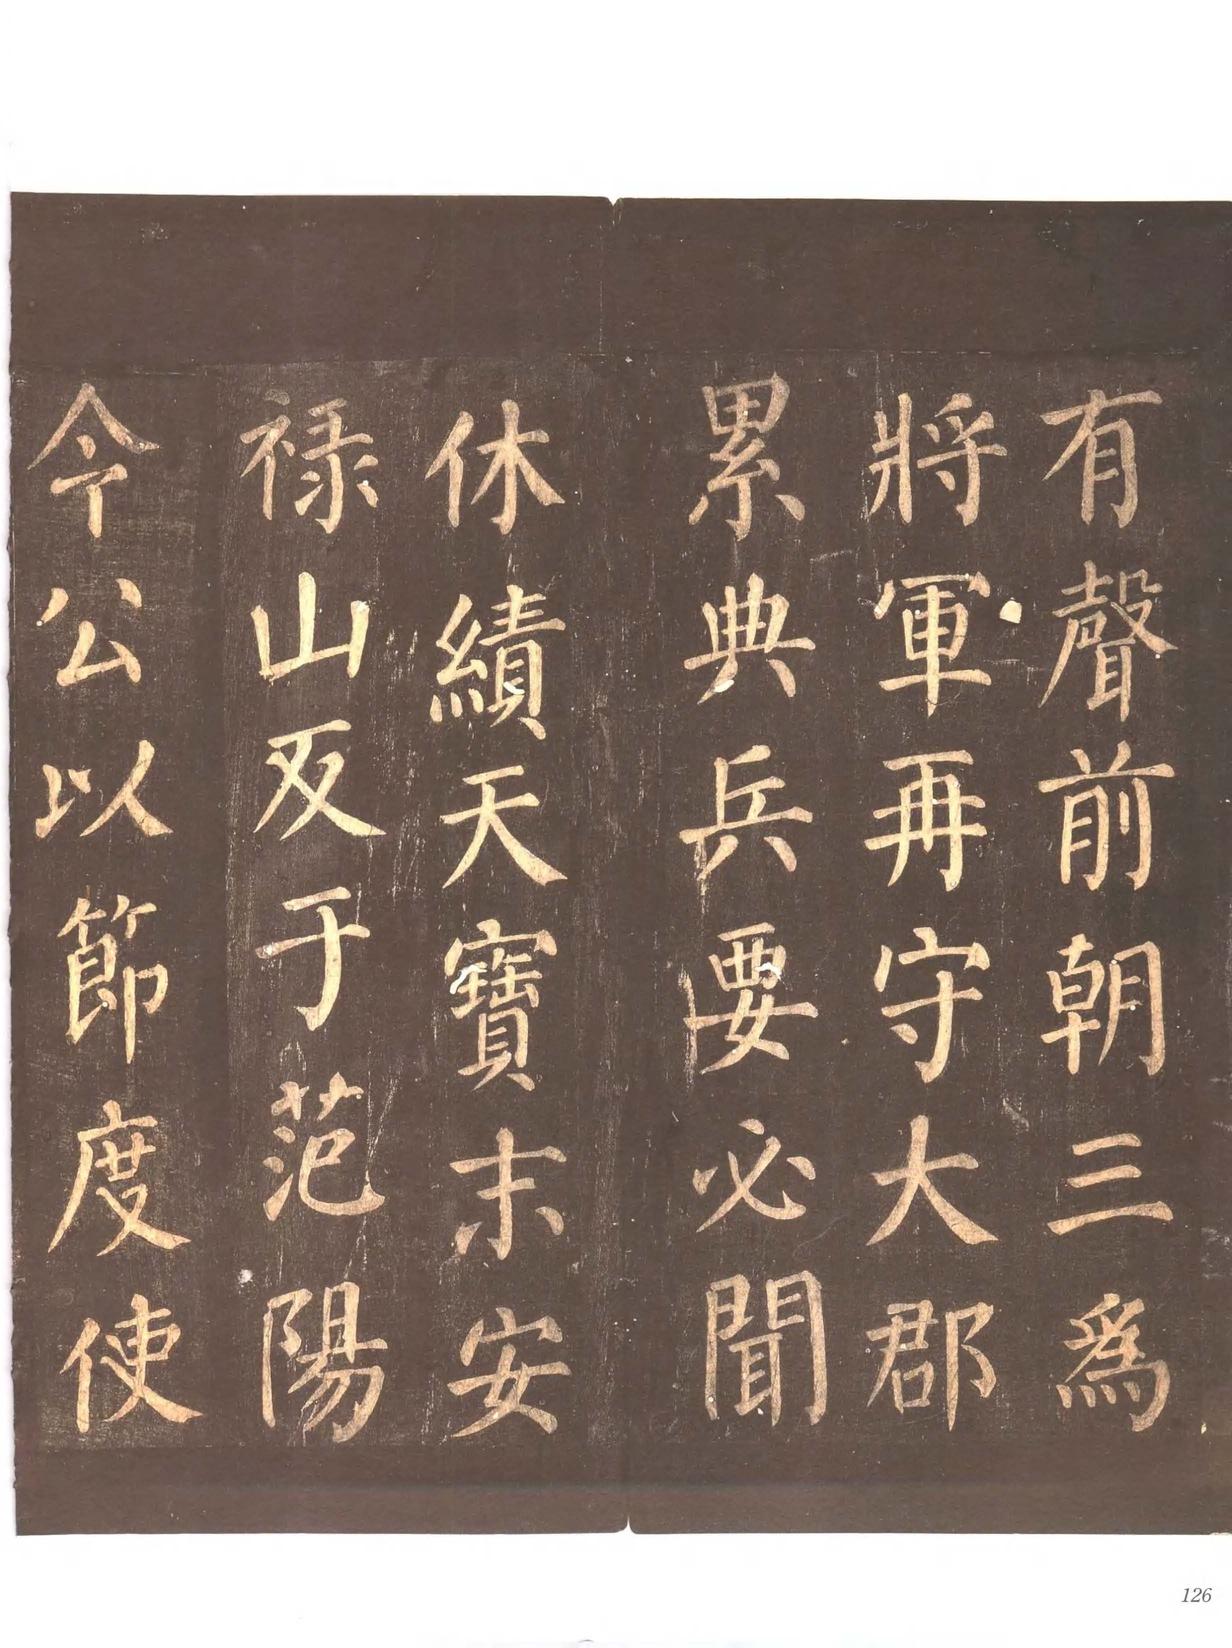 有聲前朝三為
將軍再守大郡
累典兵要必聞
休績天寶末安
祿山反于范陽
令公以節度使
126